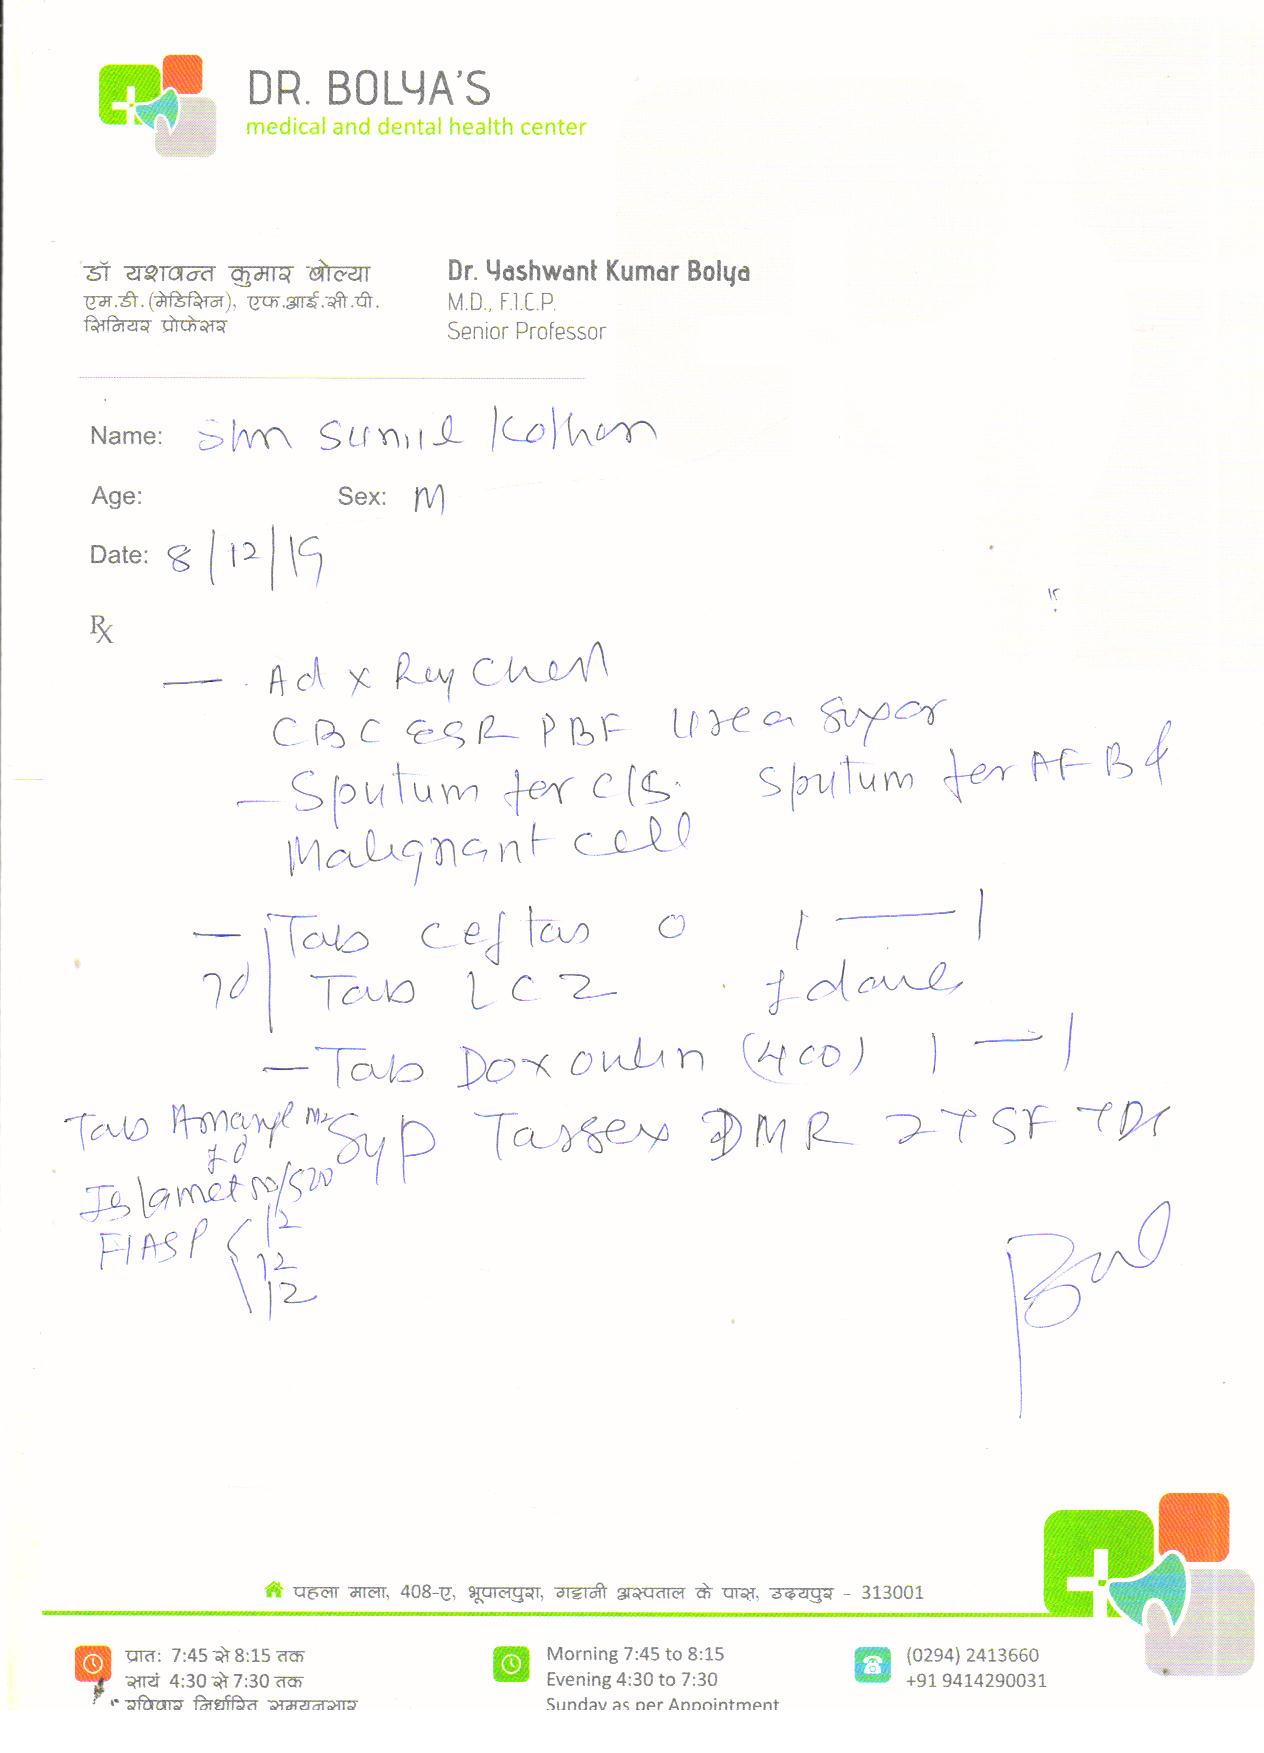 DR. BOLYA'S
medical and dental health center
डॉ यशवन्त कुमार बोल्या
एम.डी.(मेडिसिन), एफ.आई.सी.पी.
सिनियर प्रोफेसर
Dr. Yashwant Kumar Bolya
M.D., F.I.C.P.
Senior Professor
Name: Shri Sunil
Age: Sex: M
Date: 8/12/19
Rx
— Ad x Ray Chest
CBC ESR PBF Urea Sugar
— Sputum for C/S. Sputum for AFB &
Malignant cell
— Tab Ceftas O 1 — 1
7d Tab LCZ 1 daily
— Tab (400) 1 — 1
Tab Amaryl M2 Syp DMR 2 TSF TDS
1 d
Istamet 50/500
FIASP 12
12
12
पहला माला, 408-ए, भूपालपुरा, गट्टानी अस्पताल के पास, उदयपुर - 313001
प्रात: 7:45 से 8:15 तक
सायं 4:30 से 7:30 तक
रविवार निर्धारित समयनुसार
Morning 7:45 to 8:15
Evening 4:30 to 7:30
Sunday as per Appointment
(0294) 2413660
+91 9414290031